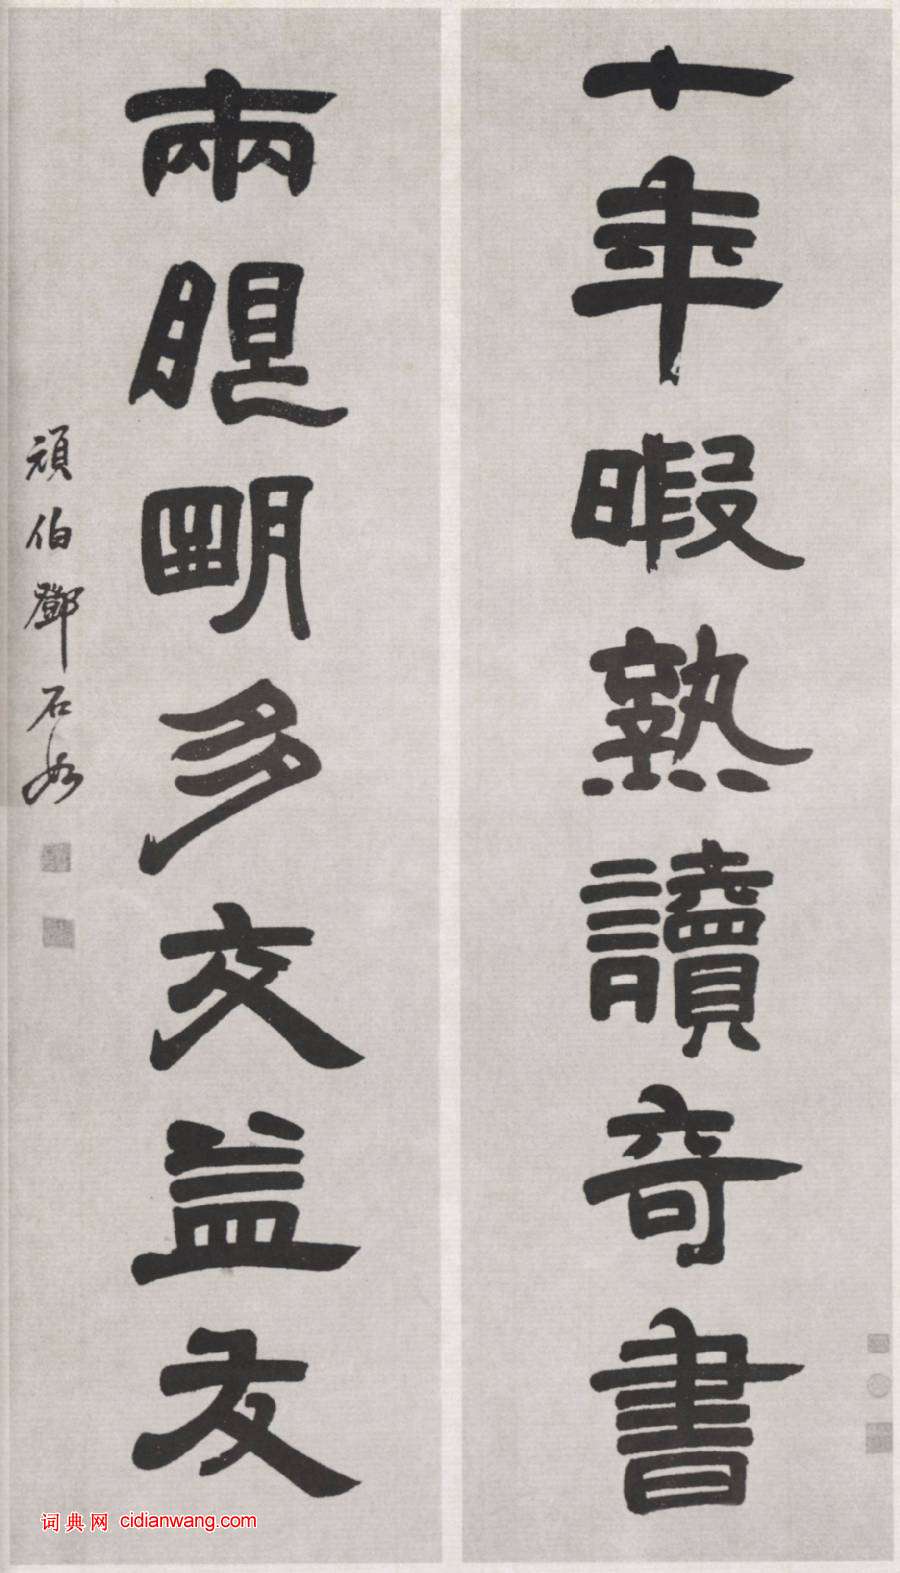 十年暇熟讀奇書
兩眼明多交益友
頑伯鄧石如
词典网 cidianwang.com